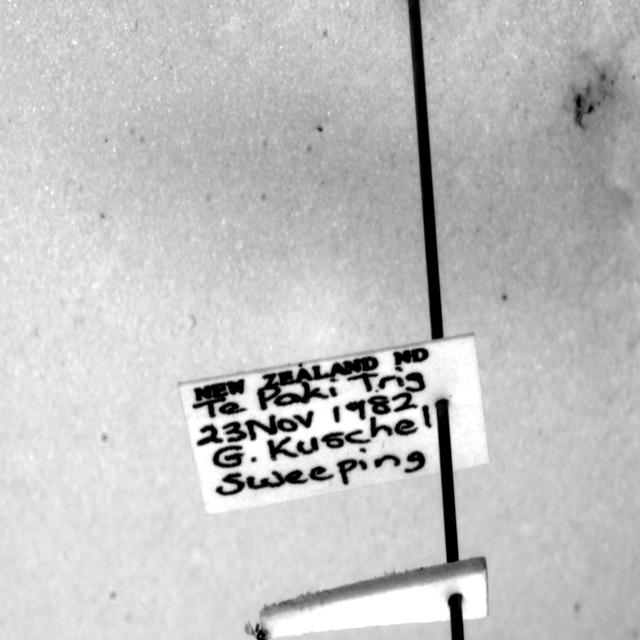 NEW ZEALAND ND
Te Paki Trig
23 Nov 1982
G. Kuschel
Sweeping